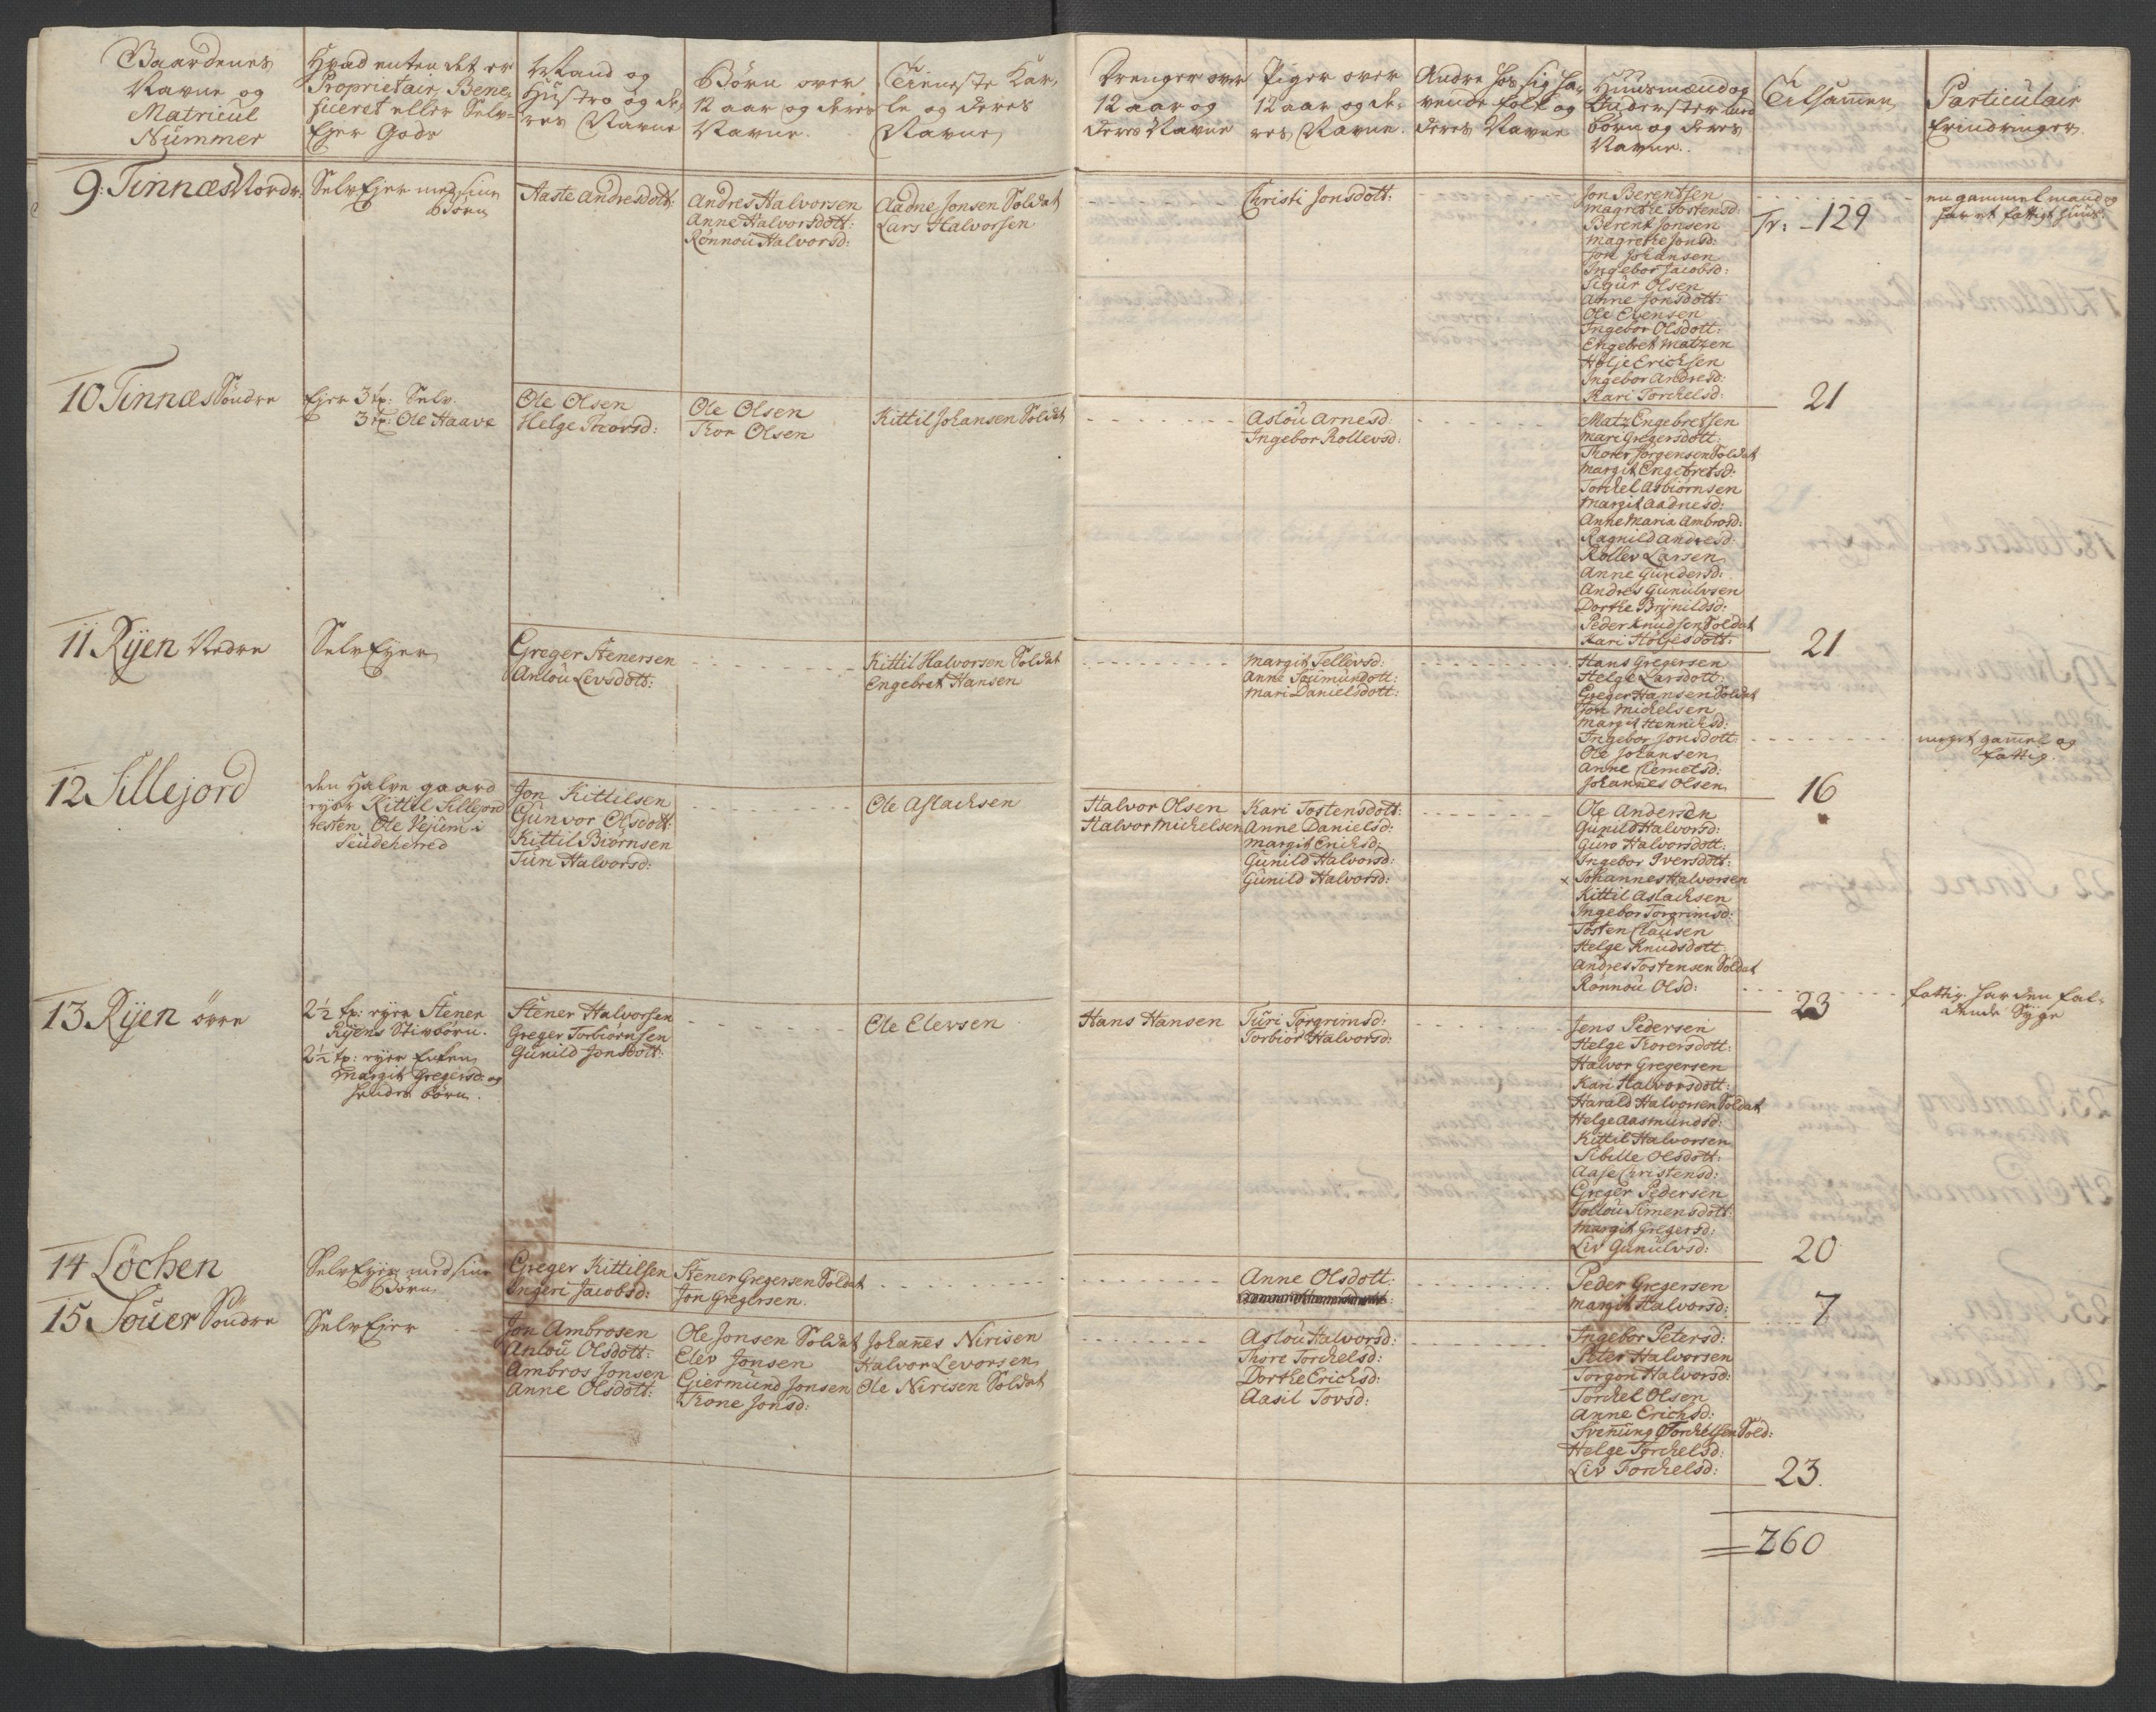 Gaardenes
Navne og
Matricul
Nummer
Hvad enten det er
Proprietair, Bene-
ficeret eller Selv-
Ejer Gods
Mand og
Hustro og de-
res Navne
Børn over
12 aar og deres
Navne.
Tieneste Kar-
le og deres
Navne
Drenge over
12 aar og
deres Navne
Piger over
12 aar og de-
res Navne.
Andre hos sig ha-
vende folk og
deres Navne
Huusmænd og
Inderster med
børn og deres
Navne.
Tilsamen
Particulair
Erindringer.
9. Tinnæs Nordr.
Selv Ejer med sine
Børn
Aaste Andresdott:
Andres Halvorsen
Anne Halvorsdott:
Rønnou Halvorsd:
Aadne Jonsen Soldat
Lars Halvorsen
Christi Jonsdott:
Jon Berentsen
Magrethe Tostensd:
Berent Jonsen
Magrethe Jonsd:
Jon Johansen
Ingebor Jacobsd:
Sigur Olsen
Anne Jonsdott:
Ole Evensen
Ingebor Olsdott:
Engebret Matzen
Holje Erichsen
Ingebor Andresd:
Kari Torchelsd:
Tr: 129
en gammel mand og
har et fattigt huus.
21
10 Tinnæs Søndre
Ejer 3 tp: Selv.
3 tp: Ole Haave
Ole Olsen
Helge Thorsd:
Ole Olsen
Thor Olsen
Kittil Johansen Soldat
Aslou Arnesd:
Ingebor Rollevsd:
Matz Engebretsen
Mari Gregersdott:
Thorer Jørgensen Soldat
Margit Engebretsd:
Torchel Asbiørnsen
Margit Aadnesd:
Anne Maria Ambrosd:
Ragnild Andresd:
Rollev Larsen
Anne Gundersd:
Andres Gunulvsen
Dorthe Brynildsd:
Peder Knudsen Soldat
Kari Holjesdott:
21
11 Rÿen Nedre
Selv Ejer
Greger Stenersen
Anlou Levsdott:
Kittil Halvorsen Soldat
Engebret Hansen
Margit Tellevsd:
Anne Saumundott:
Mari Danielsdott:
Hans Gregersen
Helge Larsdott:
Greger Hansen Soldat
Jon Michelsen
Margit Hennichsd:
Ingebor Jonsdott:
Ole Johansen
Anne Clemetsd:
Johannes Olsen
meget gamel og
fattig.
16
12 Sillejord
den Halve gaard
ejer Kittil Sillejord
resten Ole Vejum i
Seudeherred
Jon Kittilsen
Gunvor Olsdott:
Kittil Biørnsen
Turi Halvorsd:
Ole Aslachsen
Halvor Olsen
Halvor Michelsen
Kari Tostensdott:
Anne Danielsd:
Margit Erichsd:
Gunild Halvorsd:
Gunild Halvorsd:
Ole Andersen
Gunild Halvorsd:
Guro Halvorsdott:
Ingebor Iversdott:
Johannes Halvorsen
Kittil Aslachsen
Ingebor Torgrimsd:
Tosten Clausen
Helge Knudsdott:
Andres Tostensen Soldat
Rønnou Olsd:
fattig har den fal-
dende Syge
23
13 Rÿen øvre
2½ tp: ejer Stener
Rÿens Stivbørn.
2½ tp: ejer Enken
Margit Gregersd: og
hendes børn.
Stener Halvorsen
Greger Torbiørnsen
Gunild Jonsdott:
Ole Elevsen
Hans Hansen
Turi Torgrimsd:
Torbiør Halvorsd:
Jens Pedersen
Helge Thorersdott:
Halvor Gregersen
Kari Halvorsdott:
Harald Halvorsen Soldat
Helge Aasmundsd:
Kittil Halvorsen
Sibille Olsdott:
Aase Christensd:
Greger Pedersen
Tollou Simensdott:
Margit Gregersd:
Liv Gunulvsd:
20
14 Løchen
Selv Ejer med sine
Børn
Greger Kittilsen
Ingeri Jacobsd:
Stener Gregersen Soldat
Jon Gregersen.
Anne Olsdott:
Peder Gregersen
Margit Halvorsd:
7
15 Souer Søndre
Selv Ejer
Jon Ambrosen
Anlou Olsdott:
Ambros Jonsen
Anne Olsdott:
Ole Jonsen Soldat
Elev Jonsen
Giermund Jonsen
Thone Jonsd:
Johannes Nirisen
Halvor Levorsen
Ole Nirisen Soldat
Aslou Halvorsd:
Thore Torchelsd:
Dorthe Erichsd:
Aasil Tovsd:
Ingebor Petersd:
Peter Halvorsen
Torgon Halvorsd:
Torchel Olsen
Anne Erichsd:
Svenung Torchelsen Sold:
Helge Torchelsd:
Liv Torchelsd:
23.
260